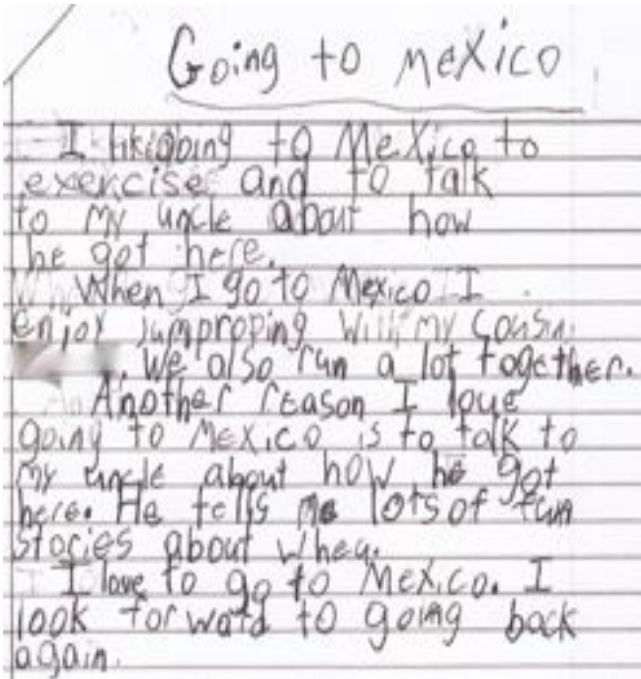 Going to mexico
I like going to Mexico to
exercise and to talk
to my uncle about how
he got here.
When I go to Mexico I
enjoy jumproping with my cousin
. We also run a lot together.
Another reason I love
going to Mexico is to talk to
my uncle about how he got
here. He tells me lots of fun
stories about when.
I love to go to Mexico. I
look forward to going back
again.